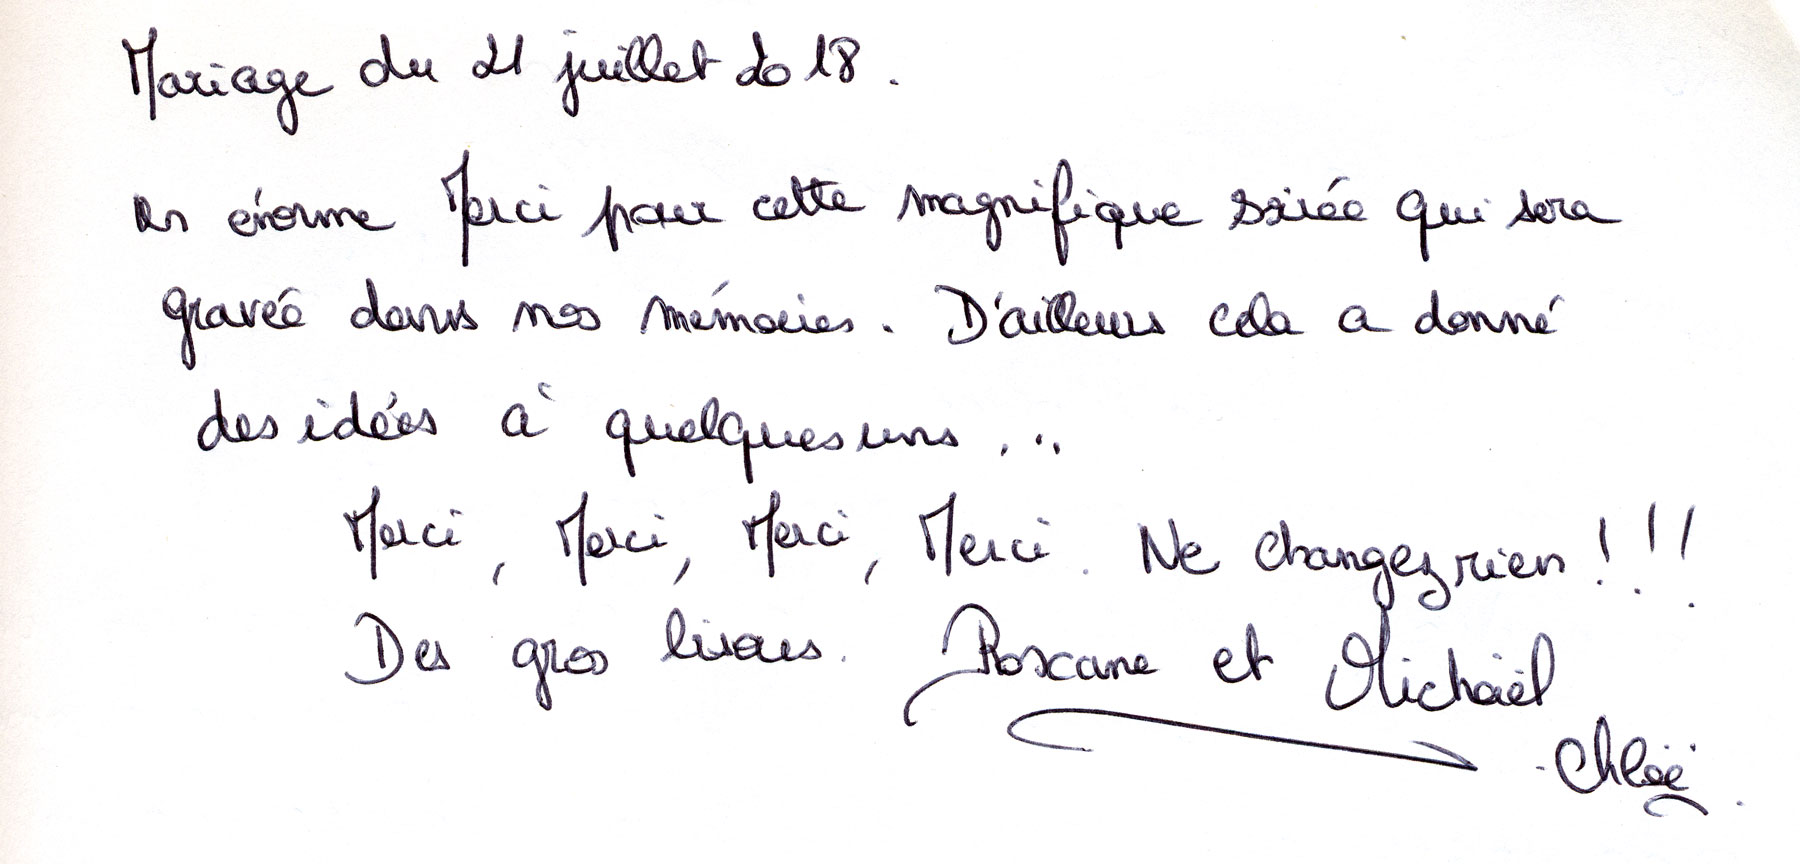 Mariage du 21 juillet 2018.
un énorme Merci pour cette magnifique soirée qui sera
gravée dans nos mémoires. D'ailleurs cela a donné
des idées à quelques uns...
Merci, Merci, Merci, Merci. Ne changez rien !!!
Des gros bisous. Roxane et Michaël
- Chloë.